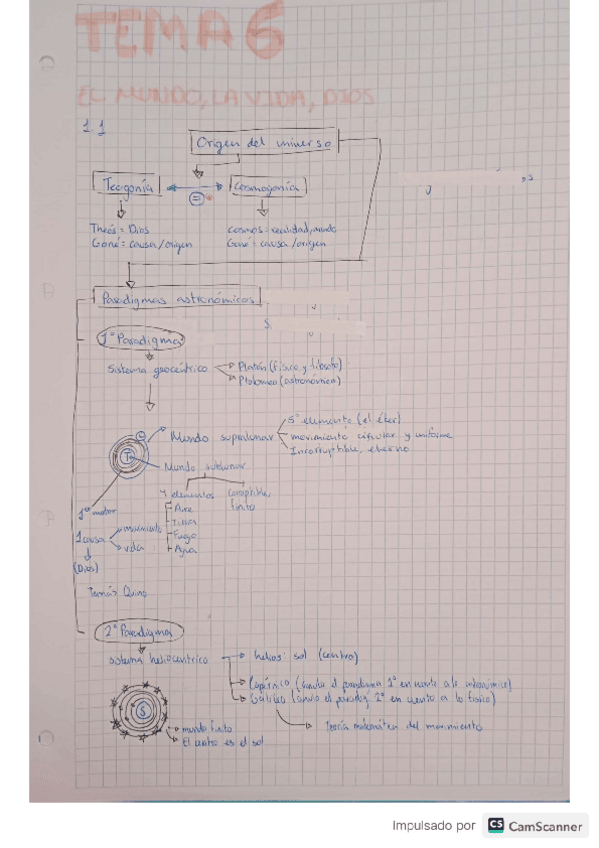 TEMA 6
EL MUNDO, LA VIDA, DIOS
1.1
Origen del universo
Teogonía
=
Cosmogonía
Theós = Dios
Goné = causa/origen
Cosmos = realidad, mundo
Goné = causa/origen
Paradigmas astronómicos
1º Paradigma
Sistema geocéntrico
Platón (físico y filósofo)
Ptolomeo (astronómica)
T
Mundo supralunar
5º elemento (el éter)
movimiento circular y uniforme
Incorruptible, eterno
Mundo sublunar
4 elementos
Aire
Tierra
Fuego
Agua
corruptible
finito
1º motor
1 causa
movimiento
vida
(Dios)
Tomás
2º Paradigma
sistema heliocéntrico
helios: sol (centro)
Copérnico (cambia el paradigma 1º en cuanto a la astronomía)
Galileo (cambia el paradig 2º en cuanto a lo físico)
Teoría matemática del movimiento
S
mundo finito
El centro es el sol
Impulsado por CS CamScanner